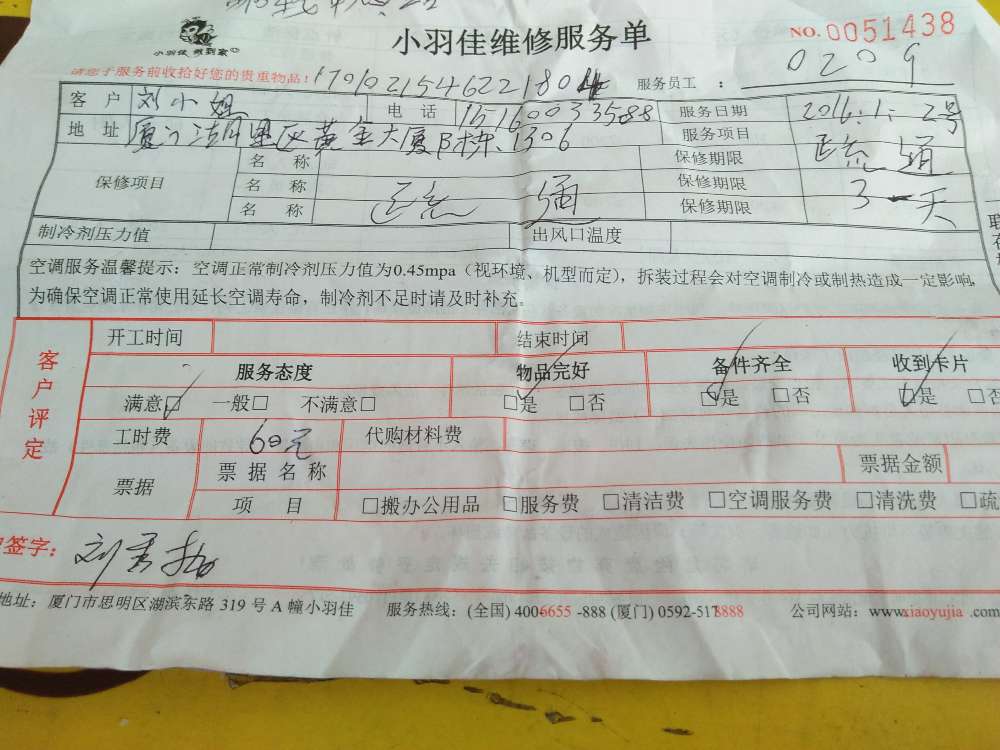 小羽佳维修服务单
NO.0051438
小羽佳 做到家
请您于服务前收拾好您的贵重物品！
服务员工：0209
客户 刘小姐 电话 15160033588 服务日期 2016.1.2号
地址 厦门 大厦B栋1306 服务项目 疏通
保修项目 名称 保修期限
名称 疏通 保修期限
名称 保修期限 3一天
制冷剂压力值 出风口温度
空调服务温馨提示：空调正常制冷剂压力值为0.45mpa（视环境、机型而定），拆装过程会对空调制冷或制热造成一定影响，
为确保空调正常使用延长空调寿命，制冷剂不足时请及时补充。
客户评定
开工时间 结束时间
服务态度 物品完好 备件齐全 收到卡片
满意□ 一般□ 不满意□ □是 □否 □是 □否 □是 □否
工时费 60元 代购材料费
票据 票据名称 票据金额
项目 □搬办公用品 □服务费 □清洁费 □空调服务费 □清洗费 □疏
签字：刘
地址：厦门市思明区湖滨东路 319 号 A 幢小羽佳 服务热线：(全国) 400-6655-888 (厦门) 0592-5178888 公司网站：www.xiaoyujia.com